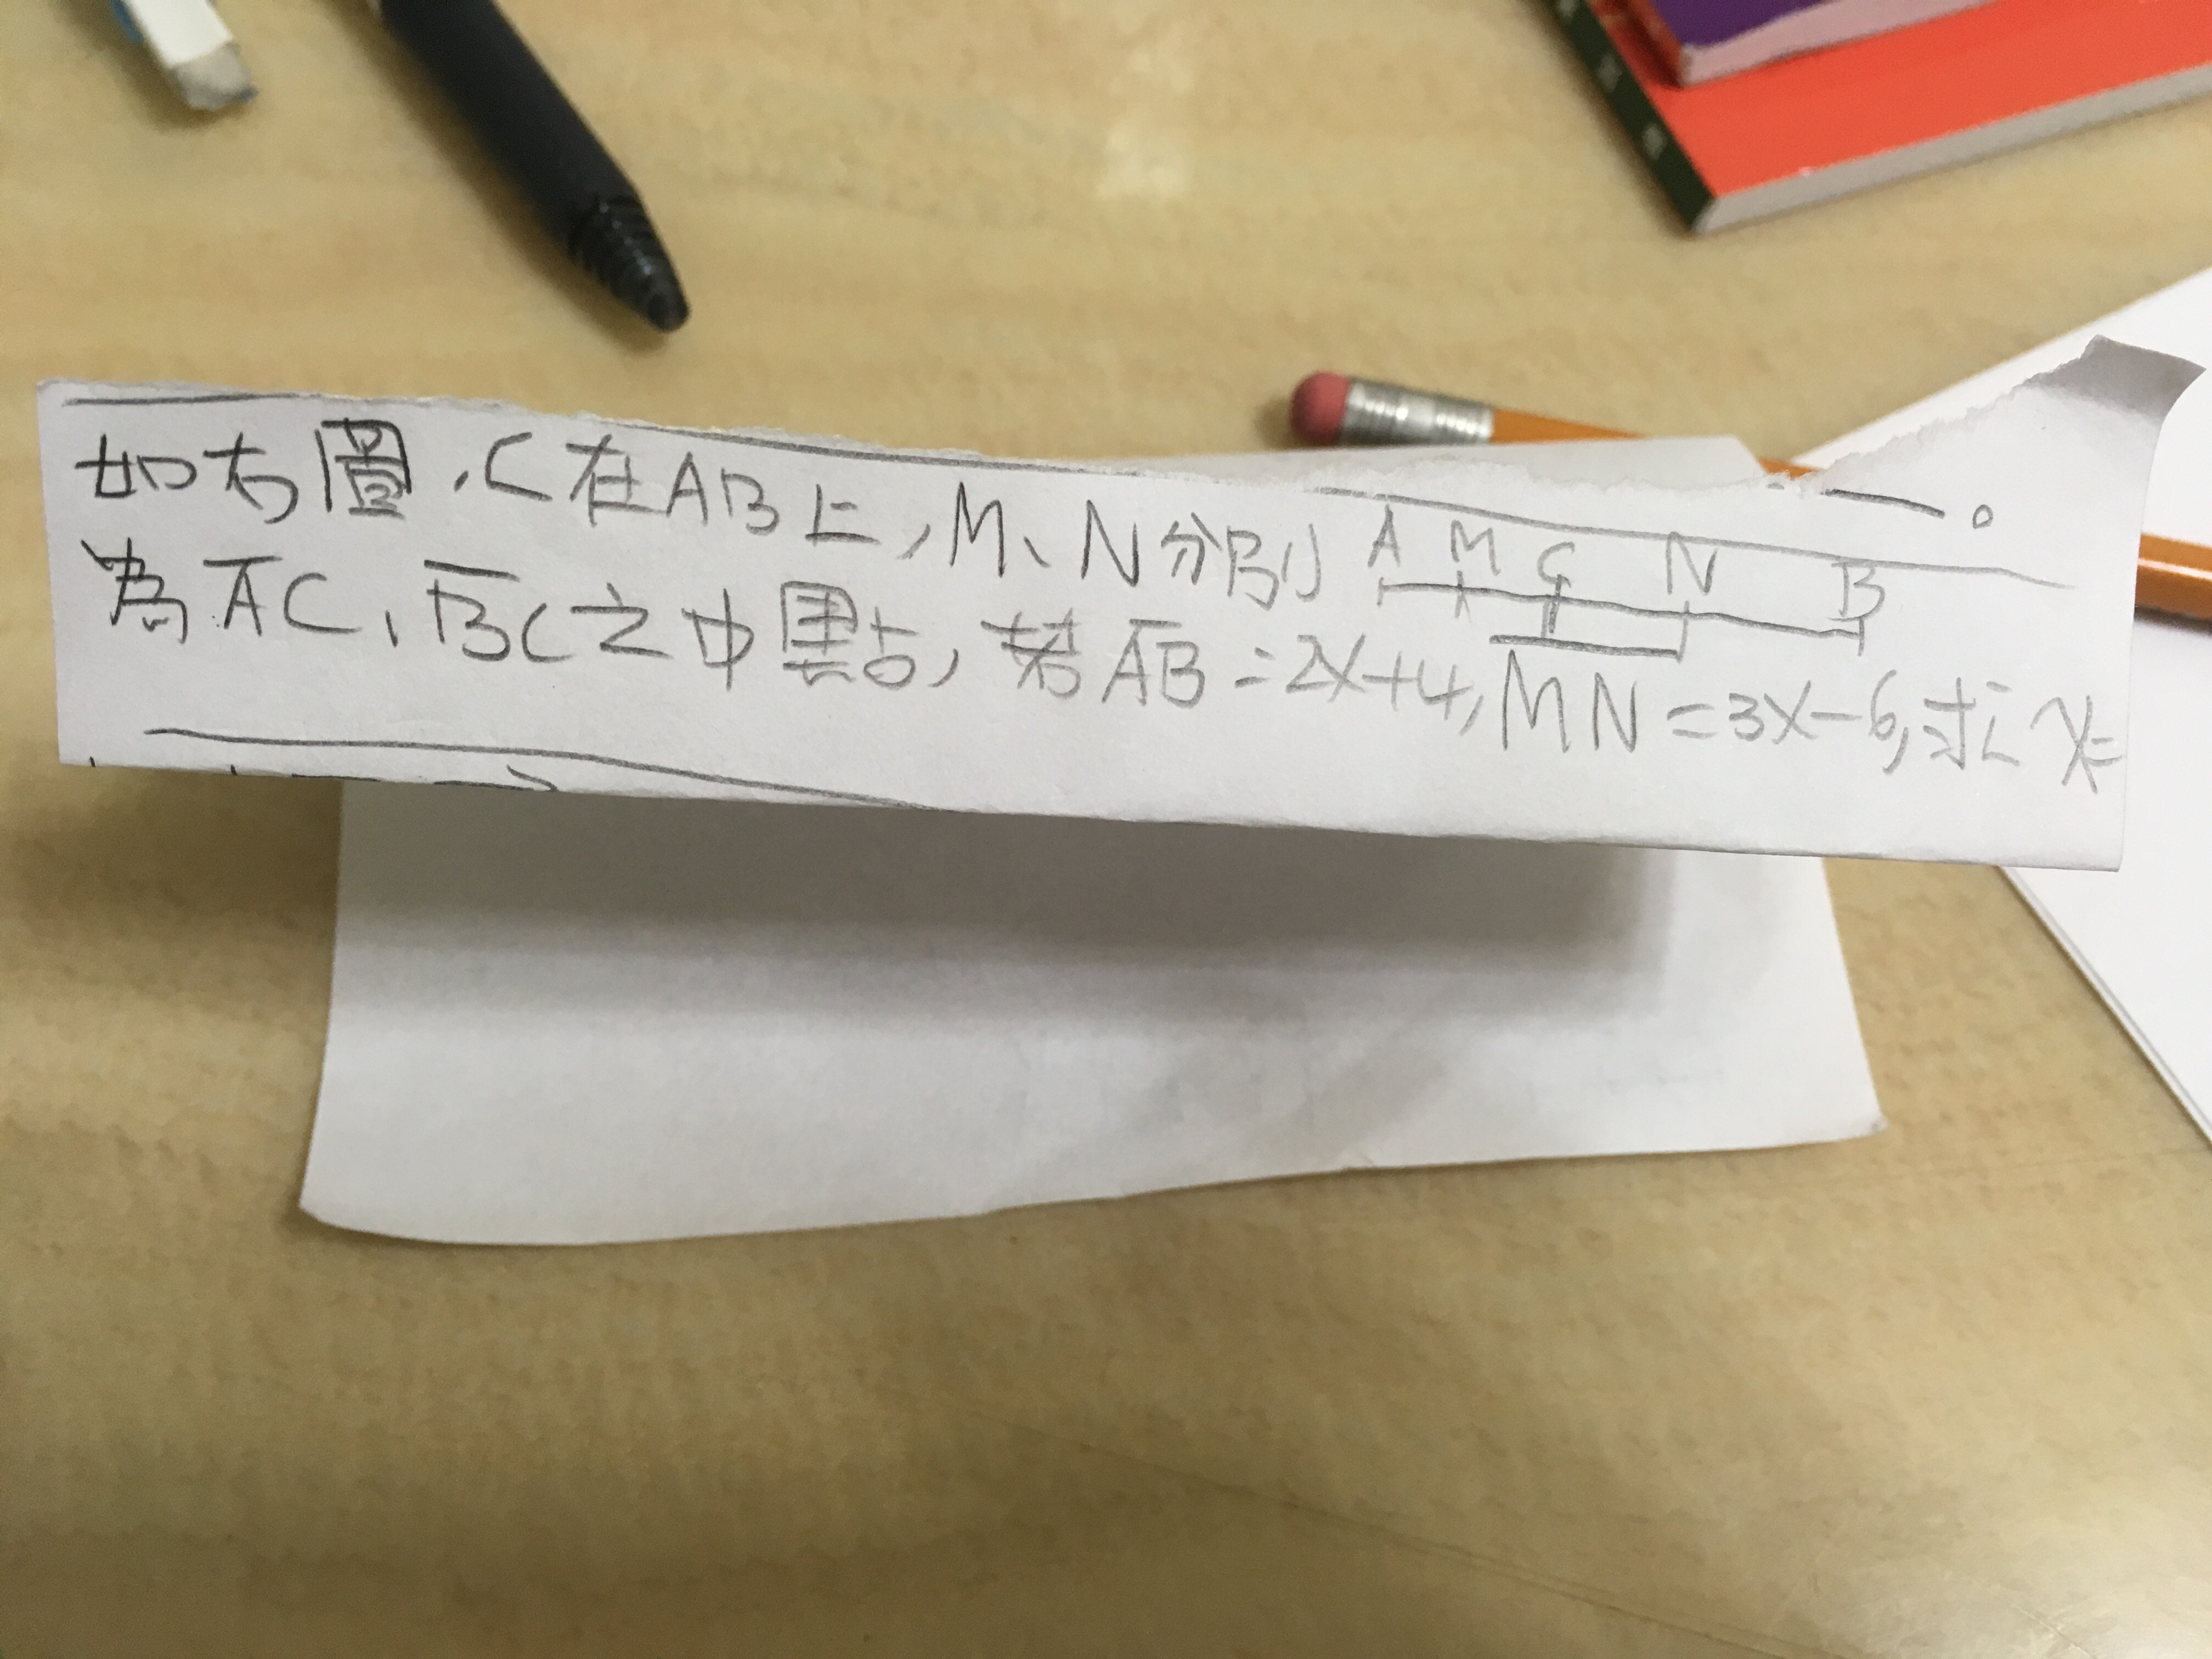 如右圖,C在AB上,M、N分別
A M C N B
為AC、BC之中點,若AB=2X+4,MN=3X-6,求X=